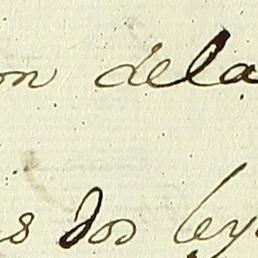 on dela
is dos ley